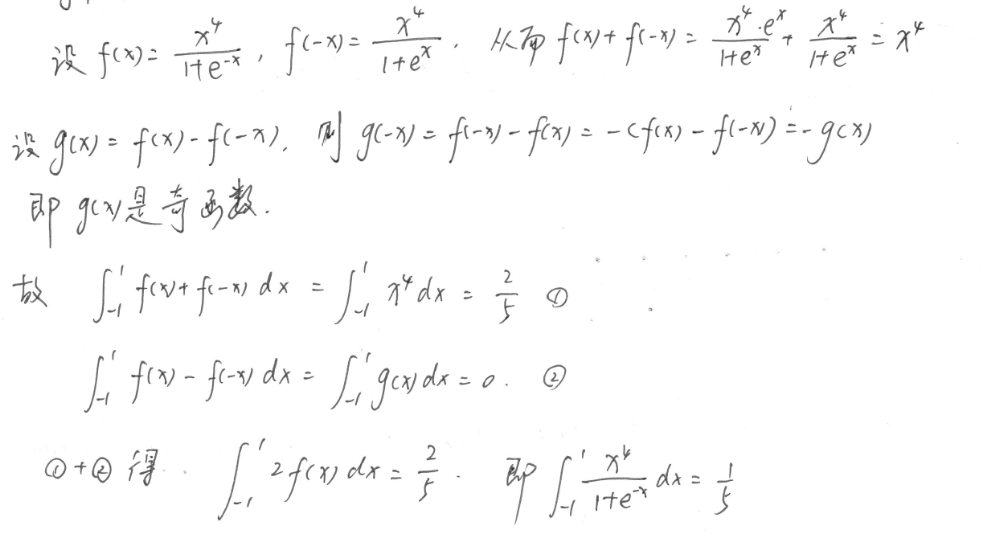 设 f(x) = x⁴/(1+e⁻ˣ), f(-x) = x⁴/(1+eˣ). 从而 f(x)+f(-x) = x⁴·eˣ/(1+eˣ) + x⁴/(1+eˣ) = x⁴
设 g(x) = f(x) - f(-x), 则 g(-x) = f(-x) - f(x) = -(f(x) - f(-x)) = -g(x)
即 g(x) 是奇函数.
故 ∫₋₁¹ f(x)+f(-x) dx = ∫₋₁¹ x⁴ dx = 2/5 ①
∫₋₁¹ f(x) - f(-x) dx = ∫₋₁¹ g(x) dx = 0. ②
①+② 得. ∫₋₁¹ 2f(x) dx = 2/5. 即 ∫₋₁¹ x⁴/(1+e⁻ˣ) dx = 1/5